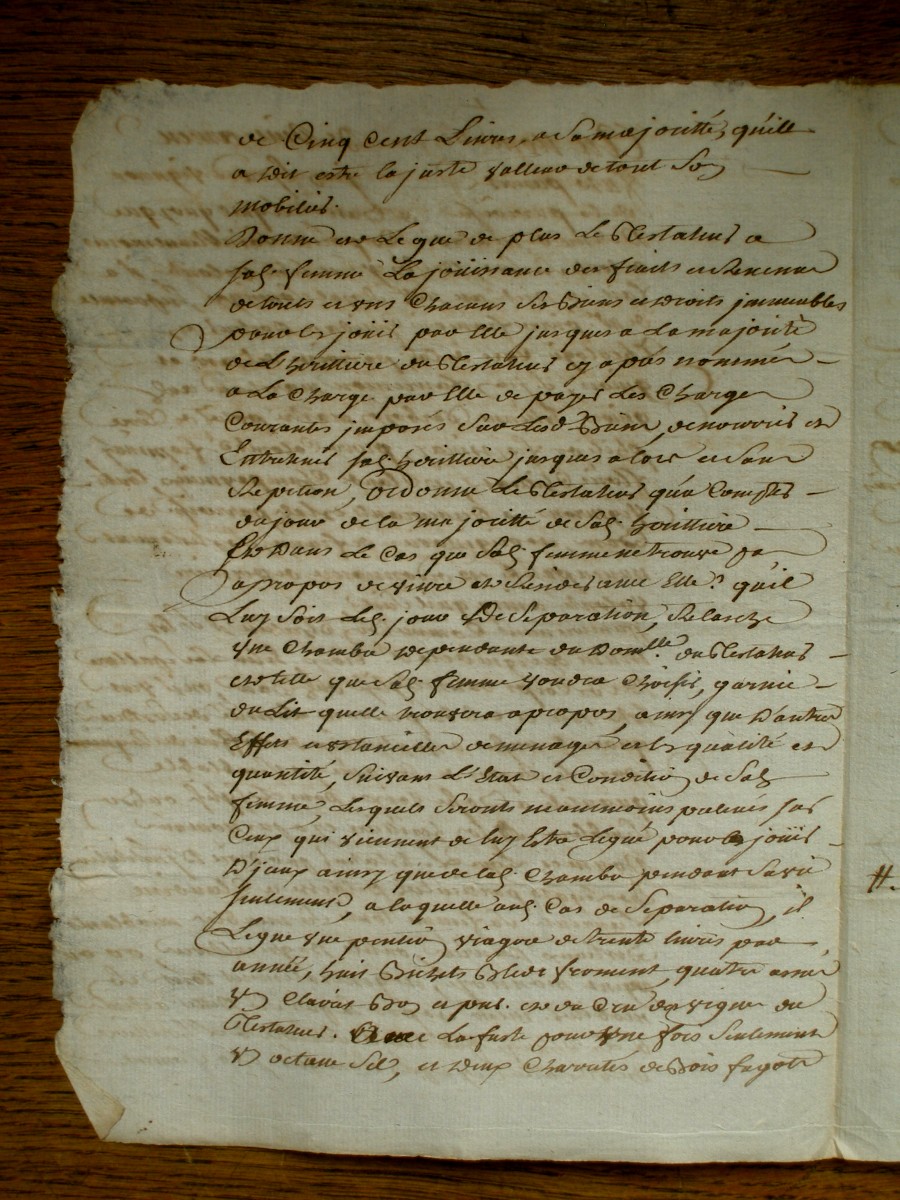 de Cinq Cent Livres, a Sa majoritté, quille
a dit estre la juste valleur de tout Son
mobilier.
Donne et Legue de plus Le Testateur a
sad. femme La joüissance des fruits et Revenus
de touts et uns Chacuns Ses Biens et droits jmmeubles
pour les joüir par Elle jusques a La majorité
de L'herittiere du Testateur cy après nommée
a La Charge par Elle de payer Les Charges
Courantes jmposés Sur Lesd. Biens, de nourrir et
Entretenir sad. herittiere jusques alors et Sans
Repetion, ordonne Le Testateur qu'a Compter
du jour de la majoritté de Sad. herittiere
Et Dans Le Cas que Sad. femme ne trouve pas
apropos de vivre et Resider avec Elle, qu'il
Luy Soit Led. jour de Separation, Relasché
une Chambre dependante du Domlle. du Testateur
et telle que Sad. femme voudra Choisir, garnie
du Lit quelle trouvera apropos, ainsy que D'autres
Effets et ustancilles de menage et la qualité et
quantité, Suivant L'Etat et Condition de Sad.
femme, Lesquels Seronts neantmoins prelevés sur
Ceux qui viennent de luy Estre Legué pour les joüir
D'jceux ainsy que de lad. Chambre pendant Sa vie
seulement, a laquelle aud. Cas de Separation, il
Legue une pention viagere de trente livres par
année, huit Bichets Bled froment, quatre année
vin Clairet Bon et pur. et du Cru des vignes du
Testateur. avec La futte pour une fois Seulement
un octane Sel, et deux Charetés de Bois fagots
#.